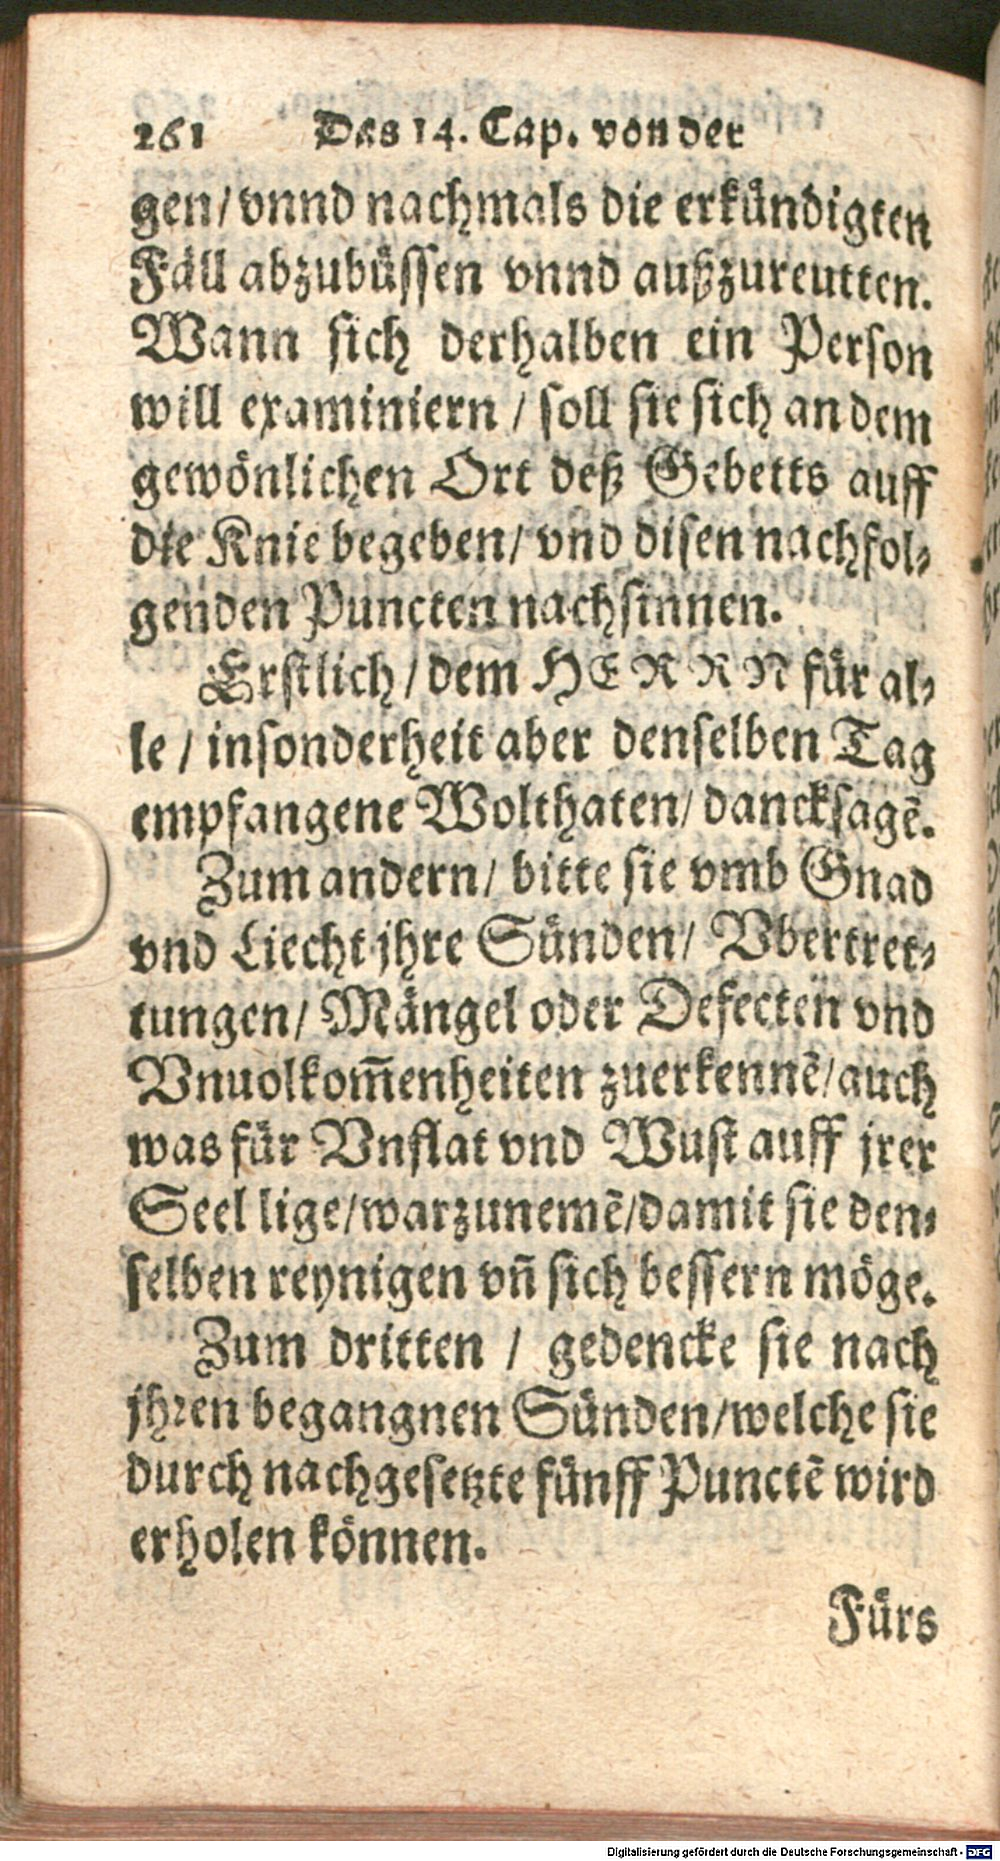 261 Das 14. Cap. von der
gen/ vnnd nachmals die erkündigten
Fäll abzubüssen vnnd außzureutten.
Wann sich derhalben ein Person
will examiniern / soll sie sich an dem
gewönlichen Ort deß Gebetts auff
die Knie begeben/ vnd disen nachfol-
genden Puncten nachsinnen.
Erstlich/ dem HERRN für al-
le / insonderheit aber denselben Tag
empfangene Wolthaten/ dancksagẽ.
Zum andern/ bitte sie vmb Gnad
vnd Liecht jhre Sünden/ Vbertret-
tungen/ Mängel oder Defecten vnd
Vnuolkom̃enheiten zuerkennẽ/ auch
was für Vnflat vnd Wust auff jrer
Seel lige/ warzunemẽ/ damit sie den-
selben reynigen vñ sich bessern möge.
Zum dritten / gedencke sie nach
jhren begangnen Sünden/ welche sie
durch nachgesetzte fünff Punctẽ wird
erholen können.
Fürs
Digitalisierung gefördert durch die Deutsche Forschungsgemeinschaft - DFG